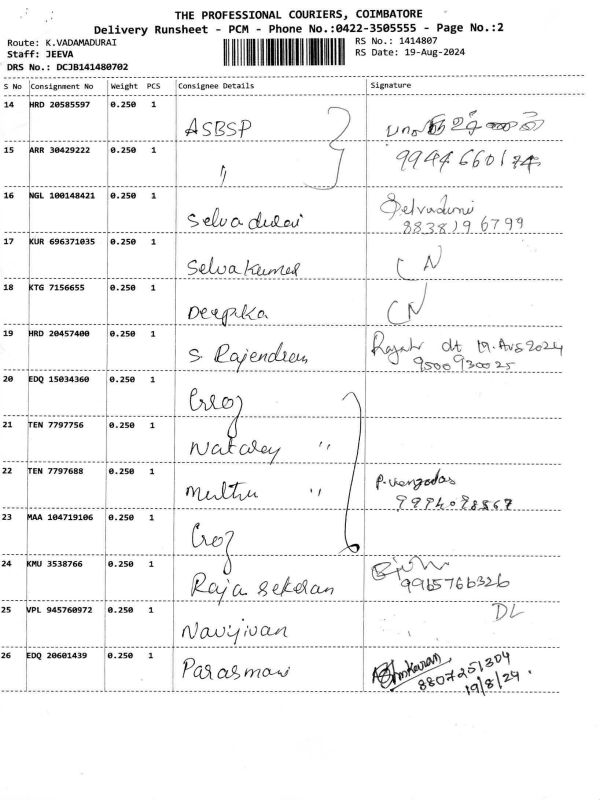 THE PROFESSIONAL COURIERS, COIMBATORE
Delivery Runsheet - PCM - Phone No.:0422-3505555 - Page No.:2
Route: K.VADAMADURAI
RS No.: 1414807
Staff: JEEVA
RS Date: 19-Aug-2024
DRS No.: DCJB141480702
S No Consignment No Weight PCS Consignee Details Signature
14 HRD 20585597 0.250 1 ASBSP
15 ARR 30429222 0.250 1 " 9944660174
16 NGL 100148421 0.250 1 Selvadurai Selvadurai
8838196799
17 KUR 696371035 0.250 1 Selvakumar CN
18 KTG 7156655 0.250 1 Deepika CN
19 HRD 20457400 0.250 1 S. Rajendran dt 19.Aug 2024
9500930025
20 EDQ 15034360 0.250 1
21 TEN 7797756 0.250 1 "
22 TEN 7797688 0.250 1 Muthu " P.
9994098567
23 MAA 104719106 0.250 1
24 KMU 3538766 0.250 1 Raja sekaran
9965766326
25 VPL 945760972 0.250 1 Navjivan DL
26 EDQ 20601439 0.250 1 Parasmani
8807251304
19/8/24.